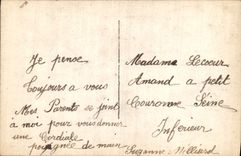 Je pense
Toujours a vous
Mes Parents se joint
à moi pour vous donner
une Cordiale
poignée de main
Madame Lecoeur
Amand a petit
Couronne Seine
Inférieur
Suzanne